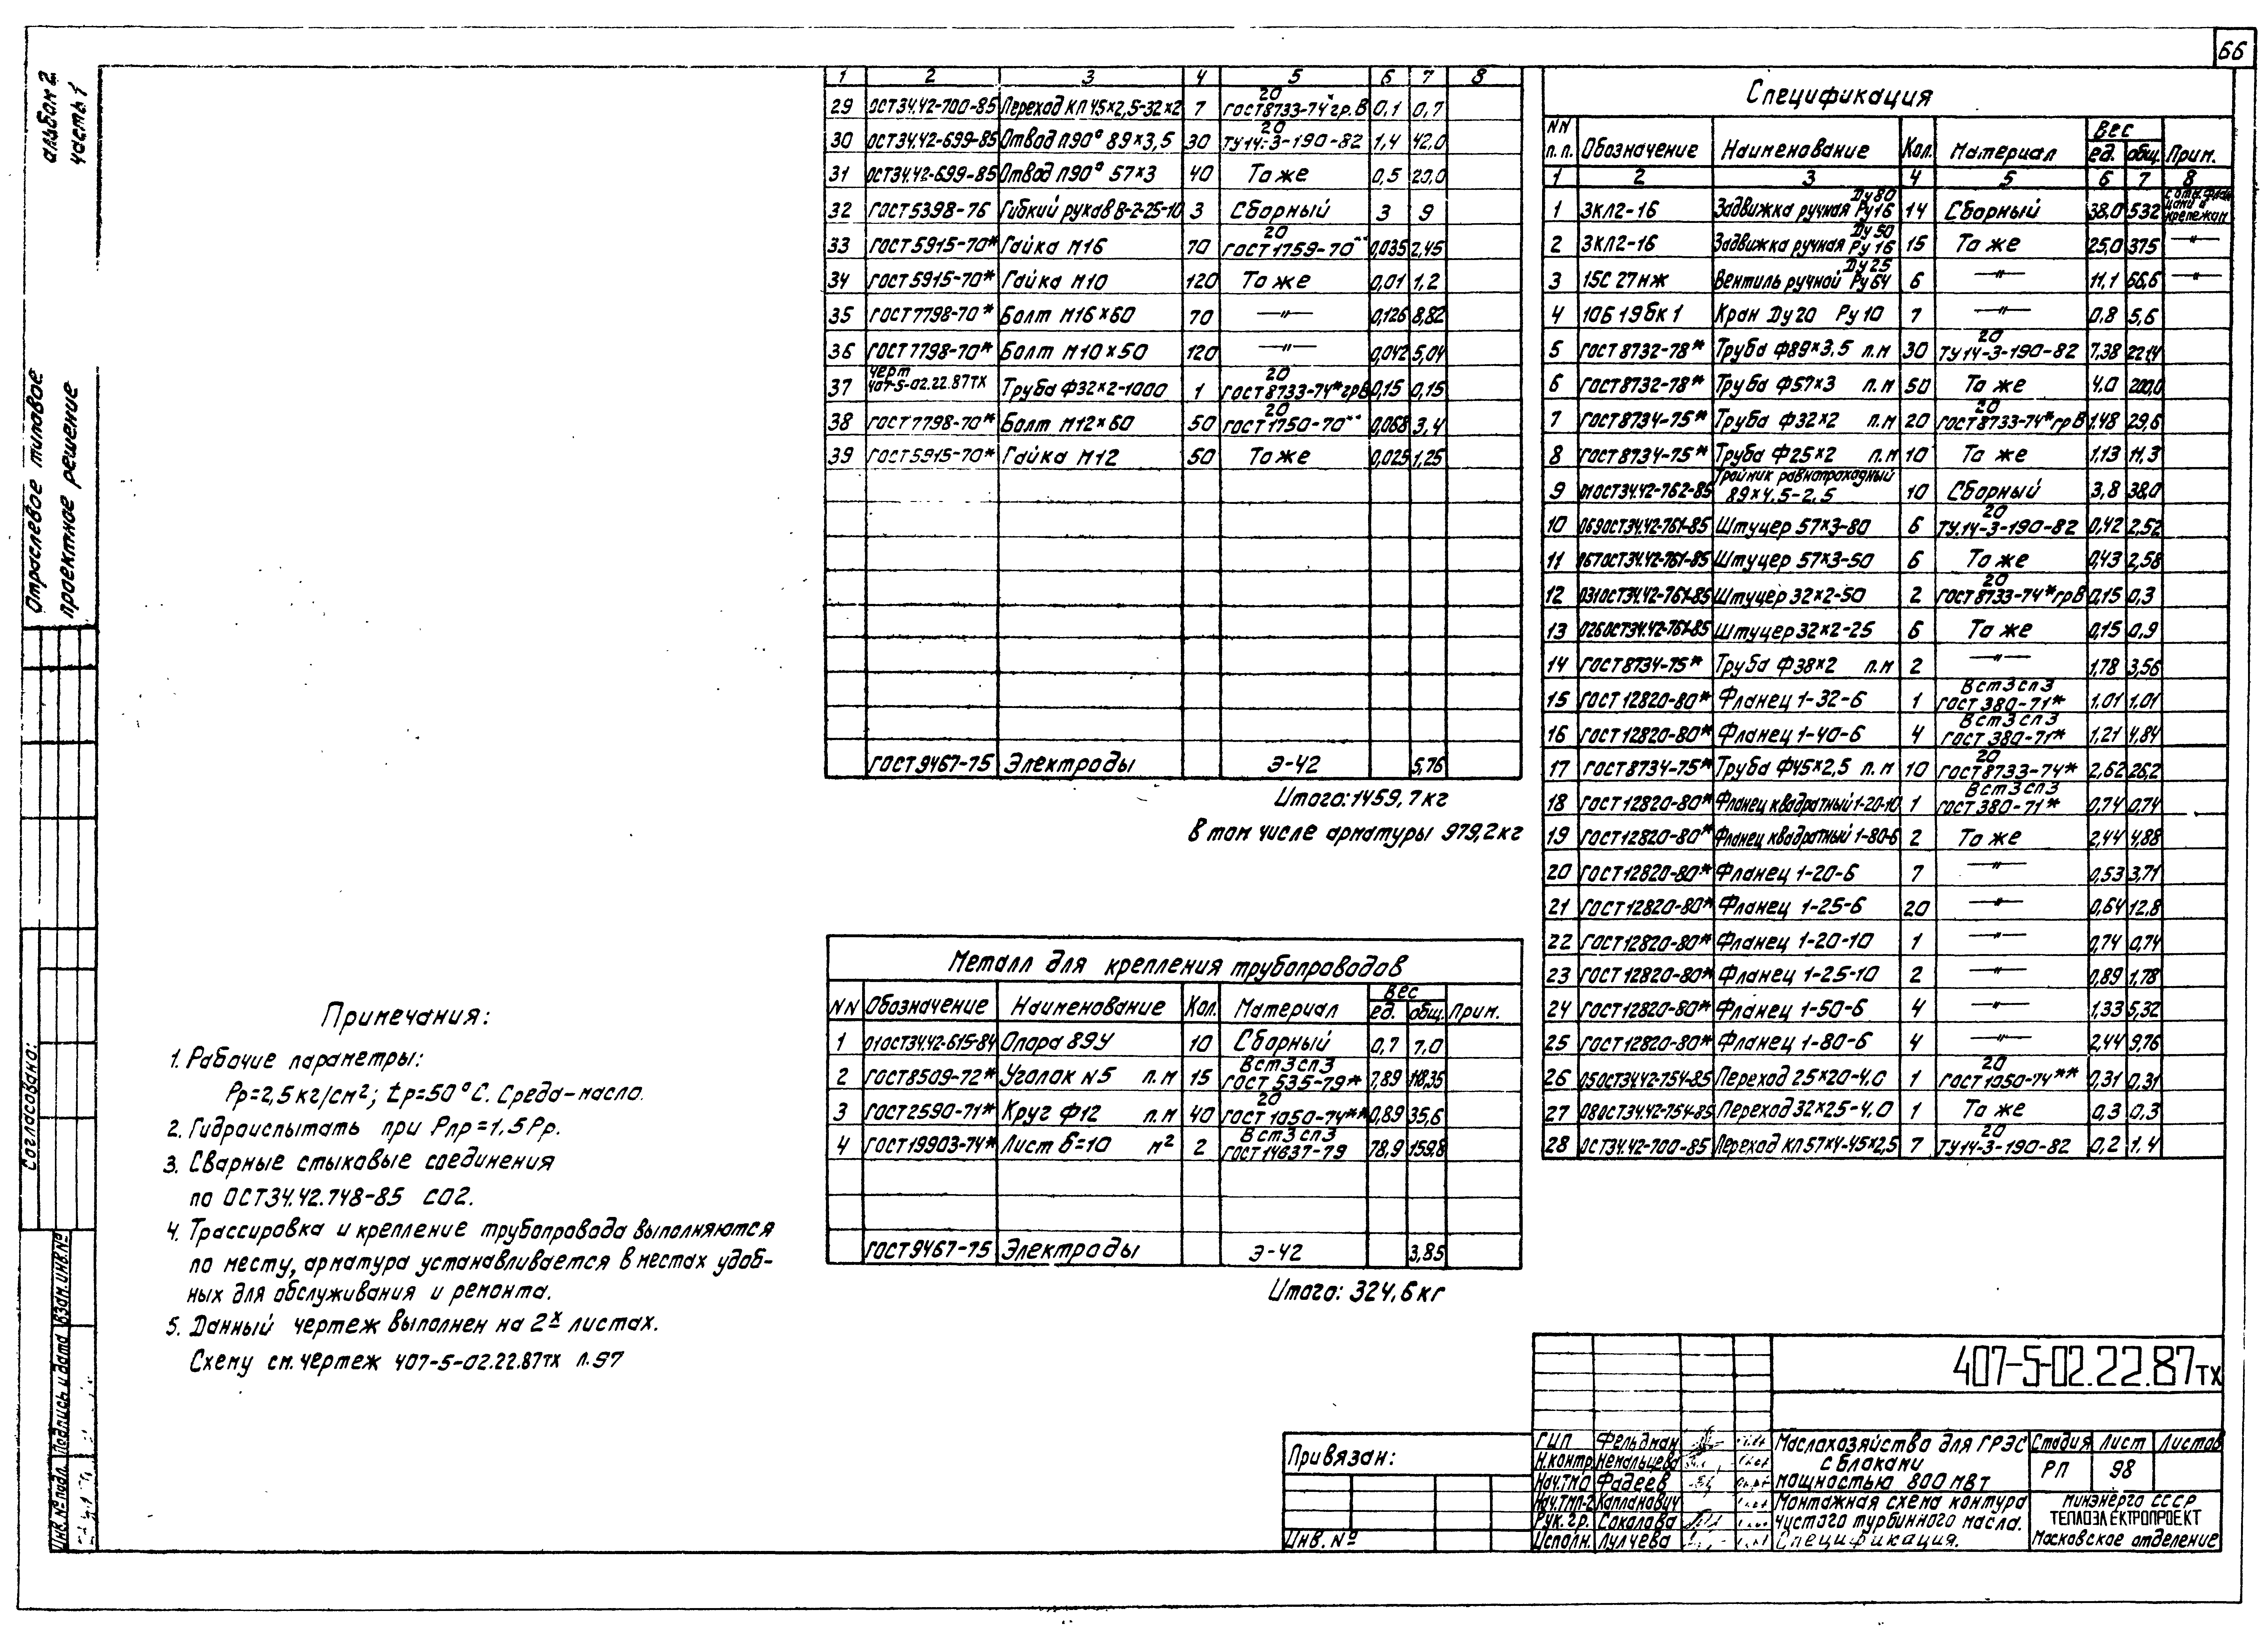 66
альбом 2
часть 1
Отраслевое типовое
проектное решение
Согласовано:
Инв.№ подл. Подпись и дата Взам.инв.№
1 2 3 4 5 6 7 8
29 ОСТ34.42-700-85 Переход КП 45×2,5-32×2 7 20 ГОСТ8733-74*гр.В 0,1 0,7
30 ОСТ34.42-699-85 Отвод П90° 89×3,5 30 20 ТУ14-3-190-82 1,4 42,0
31 ОСТ34.42-699-85 Отвод П90° 57×3 40 То же 0,5 20,0
32 ГОСТ5398-76 Гибкий рукав В-2-25-10 3 Сборный 3 9
33 ГОСТ5915-70* Гайка М16 70 20 ГОСТ1759-70** 0,035 2,45
34 ГОСТ5915-70* Гайка М10 120 То же 0,01 1,2
35 ГОСТ7798-70* Болт М16×60 70 —"— 0,126 8,82
36 ГОСТ7798-70* Болт М10×50 120 —"— 0,042 5,04
37 черт 407-5-02.22.87ТХ Труба Ф32×2-1000 1 20 ГОСТ8733-74*грВ 0,15 0,15
38 ГОСТ7798-70* Болт М12×60 50 20 ГОСТ1750-70** 0,068 3,4
39 ГОСТ5915-70* Гайка М12 50 То же 0,025 1,25
ГОСТ9467-75 Электроды Э-42 5,76
Итого: 1459,7кг
В том числе арматуры 979,2кг
Спецификация
NN п.п. Обозначение Наименование Кол. Материал Вес ед. общ. Прим.
1 2 3 4 5 6 7 8
1 ЗКЛ2-16 Задвижка ручная Ду80 Ру16 14 Сборный 38,0 532 крепежом
2 ЗКЛ2-16 Задвижка ручная Ду50 Ру16 15 То же 25,0 375 —"—
3 15С27НЖ Вентиль ручной Ду25 Ру64 6 —"— 11,1 66,6 —"—
4 10Б19бк1 Кран Ду20 Ру10 7 —"— 0,8 5,6
5 ГОСТ8732-78* Труба Ф89×3,5 п.м 30 20 ТУ14-3-190-82 7,38 221,4
6 ГОСТ8732-78* Труба Ф57×3 п.м 50 То же 4.0 200,0
7 ГОСТ8734-75* Труба Ф32×2 п.м 20 20 ГОСТ8733-74*грВ 1,48 29,6
8 ГОСТ8734-75* Труба Ф25×2 п.м 10 То же 1,13 11,3
9 01ОСТ34.42-762-85 Тройник равнопроходный 89×4,5-2,5 10 Сборный 3,8 38,0
10 069ОСТ34.42-761-85 Штуцер 57×3-80 6 20 ТУ.14-3-190-82 0,42 2,52
11 067ОСТ34.42-761-85 Штуцер 57×3-50 6 То же 0,43 2,58
12 031ОСТ34.42-761-85 Штуцер 32×2-50 2 20 ГОСТ8733-74*грВ 0,15 0,3
13 026ОСТ34.42-761-85 Штуцер 32×2-25 6 То же 0,15 0,9
14 ГОСТ8734-75* Труба Ф38×2 п.м 2 —"— 1,78 3,56
15 ГОСТ12820-80* Фланец 1-32-6 1 Вст3сп3 ГОСТ380-71* 1,01 1,01
16 ГОСТ12820-80* Фланец 1-40-6 4 Вст3сп3 ГОСТ380-71* 1,21 4,84
17 ГОСТ8734-75* Труба Ф45×2,5 п.м 10 20 ГОСТ8733-74* 2,62 26,2
18 ГОСТ12820-80* Фланец квадратный 1-20-10 1 Вст3сп3 ГОСТ380-71* 0,74 0,74
19 ГОСТ12820-80* Фланец квадратный 1-80-6 2 То же 2,44 4,88
20 ГОСТ12820-80* Фланец 1-20-6 7 —"— 0,53 3,71
21 ГОСТ12820-80* Фланец 1-25-6 20 —"— 0,64 12,8
22 ГОСТ12820-80* Фланец 1-20-10 1 —"— 0,74 0,74
23 ГОСТ12820-80* Фланец 1-25-10 2 —"— 0,89 1,78
24 ГОСТ12820-80* Фланец 1-50-6 4 —"— 1,33 5,32
25 ГОСТ12820-80* Фланец 1-80-6 4 —"— 2,44 9,76
26 050ОСТ34.42-754-85 Переход 25×20-4,0 1 20 ГОСТ1050-74** 0,31 0,31
27 080ОСТ34.42-754-85 Переход 32×25-4,0 1 То же 0,3 0,3
28 ОСТ34.42-700-85 Переход КП 57×4-45×2,5 7 20 ТУ14-3-190-82 0,2 1,4
Металл для крепления трубопроводов
NN Обозначение Наименование Кол. Материал Вес ед. общ. Прим.
1 01ОСТ34.42-615-84 Опора 89У 10 Сборный 0,7 7,0
2 ГОСТ8509-72* Уголок N5 п.м 15 Вст3сп3 ГОСТ 535-79* 7,89 118,35
3 ГОСТ2590-71* Круг Ф12 п.м 40 20 ГОСТ1050-74** 0,89 35,6
4 ГОСТ19903-74* Лист б=10 м² 2 Вст3сп3 ГОСТ14637-79 78,9 159,8
ГОСТ9467-75 Электроды Э-42 3,85
Итого: 324,6кг
Примечания:
1. Рабочие параметры:
Рр=2,5кг/см²; tр=50°С. Среда-масло.
2. Гидроиспытать при Рпр=1,5Рр.
3. Сварные стыковые соединения
по ОСТ34.42.748-85 С02.
4. Трассировка и крепление трубопровода выполняются
по месту, арматура устанавливается в местах удоб-
ных для обслуживания и ремонта.
5. Данный чертеж выполнен на 2х листах.
Схему см.чертеж 407-5-02.22.87ТХ л.97
Привязан:
Инв.№
407-5-02.22.87ТХ
ГИП Фельдман
Н.контр Немальцева
Нач.ТМО Фадеев
Нач.ТМП-2 Капланович
Рук.гр. Соколова
Исполн. Лулчева
Маслохозяйство для ГРЭС
с блоками
мощностью 800 МВт
Стадия Лист Листов
РП 98
Монтажная схема контура
чистого турбинного масла.
Спецификация.
МИНЭНЕРГО СССР
ТЕПЛОЭЛЕКТРОПРОЕКТ
Московское отделение